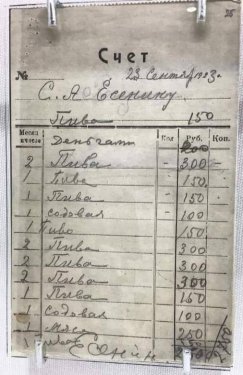 Счет
№ 23 Сентяб 1923 г.
С. А. Есенину
Пива 150
Месяц и число Кол Руб. Коп.
Деньгами 200
2 Пива - 300 -
1 Пива 150
1 Пива - 150
1 содовая - 100
1 Пиво 150
2 Пива 300
2 Пива 300
2 Пива 300
1 Пива 150
1 содовая 100
1 Мясо 250
1